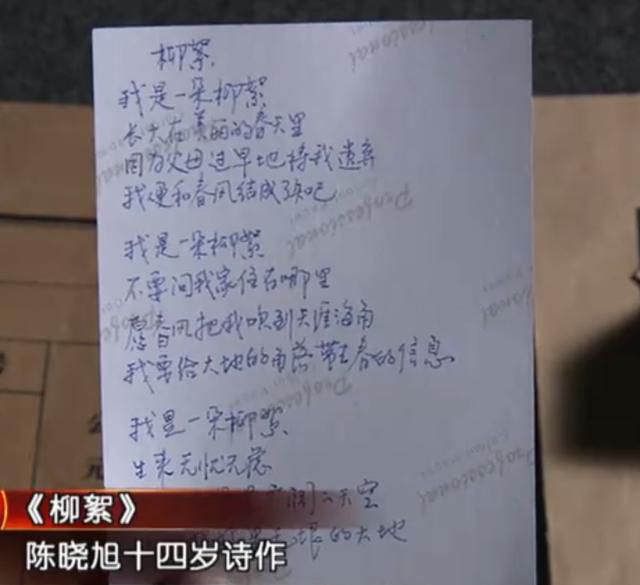 柳絮
我是一朵柳絮
长大在美丽的春天里
因为父母过早地将我遗弃
我便和春风结成知己
我是一朵柳絮
不要问我家住在哪里
愿春风把我吹到天涯海角
我要给大地的角落带去春的信息
我是一朵柳絮
生来无忧无虑
天空
的大地
《柳絮》
陈晓旭十四岁诗作